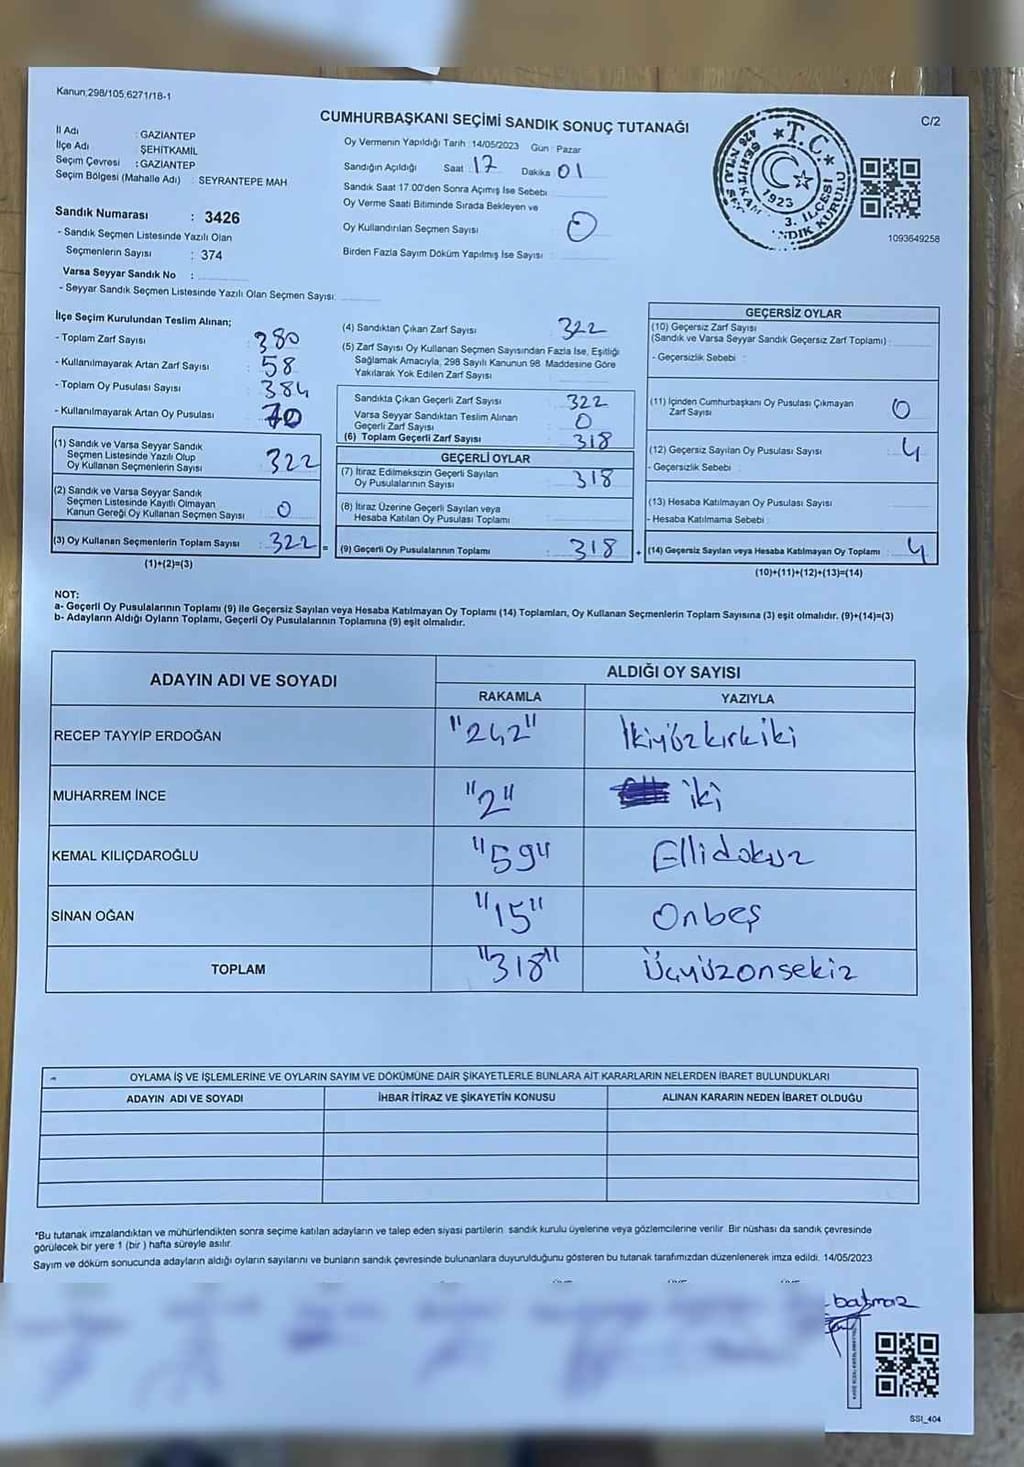 Kanun,298/105,6271/18-1
CUMHURBAŞKANI SEÇİMİ SANDIK SONUÇ TUTANAĞI
C/2
İl Adı : GAZİANTEP
İlçe Adı : ŞEHİTKAMİL
Seçim Çevresi : GAZİANTEP
Seçim Bölgesi (Mahalle Adı) SEYRANTEPE MAH
Oy Vermenin Yapıldığı Tarih :14/05/2023 Gün : Pazar
Sandığın Açıldığı Saat : 17 Dakika 01
Sandık Saat 17.00'den Sonra Açımış İse Sebebi
Oy Verme Saati Bitiminde Sırada Bekleyen ve
Oy Kullandırılan Seçmen Sayısı 0
Birden Fazla Sayım Döküm Yapılmış İse Sayısı :
T.C.
1923
3. İLÇESİ
1093649258
Sandık Numarası : 3426
- Sandık Seçmen Listesinde Yazılı Olan
Seçmenlerin Sayısı : 374
Varsa Seyyar Sandık No :
- Seyyar Sandık Seçmen Listesinde Yazılı Olan Seçmen Sayısı:
İlçe Seçim Kurulundan Teslim Alınan;
- Toplam Zarf Sayısı : 380
- Kullanılmayarak Artan Zarf Sayısı : 58
- Toplam Oy Pusulası Sayısı : 384
- Kullanılmayarak Artan Oy Pusulası : 70
(1) Sandık ve Varsa Seyyar Sandık
Seçmen Listesinde Yazılı Olup
Oy Kullanan Seçmenlerin Sayısı : 322
(2) Sandık ve Varsa Seyyar Sandık
Seçmen Listesinde Kayıtlı Olmayan
Kanun Gereği Oy Kullanan Seçmen Sayısı : 0
(3) Oy Kullanan Seçmenlerin Toplam Sayısı : 322 =
(1)+(2)=(3)
(4) Sandıktan Çıkan Zarf Sayısı : 322
(5) Zarf Sayısı Oy Kullanan Seçmen Sayısından Fazla İse, Eşitliği
Sağlamak Amacıyla, 298 Sayılı Kanunun 98. Maddesine Göre
Yakılarak Yok Edilen Zarf Sayısı
Sandıkta Çıkan Geçerli Zarf Sayısı : 322
Varsa Seyyar Sandıktan Teslim Alınan
Geçerli Zarf Sayısı : 0
(6) Toplam Geçerli Zarf Sayısı : 318
GEÇERLİ OYLAR
(7) İtiraz Edilmeksizin Geçerli Sayılan
Oy Pusulalarının Sayısı : 318
(8) İtiraz Üzerine Geçerli Sayılan veya
Hesaba Katılan Oy Pusulası Toplamı
(9) Geçerli Oy Pusulalarının Toplamı : 318 +
GEÇERSİZ OYLAR
(10) Geçersiz Zarf Sayısı
(Sandık ve Varsa Seyyar Sandık Geçersiz Zarf Toplamı) :
- Geçersizlik Sebebi :
(11) İçinden Cumhurbaşkanı Oy Pusulası Çıkmayan
Zarf Sayısı 0
(12) Geçersiz Sayılan Oy Pusulası Sayısı : 4
- Geçersizlik Sebebi :
(13) Hesaba Katılmayan Oy Pusulası Sayısı
- Hesaba Katılmama Sebebi :
(14) Geçersiz Sayılan veya Hesaba Katılmayan Oy Toplamı : 4
(10)+(11)+(12)+(13)=(14)
NOT:
a- Geçerli Oy Pusulalarının Toplamı (9) ile Geçersiz Sayılan veya Hesaba Katılmayan Oy Toplamı (14) Toplamları, Oy Kullanan Seçmenlerin Toplam Sayısına (3) eşit olmalıdır. (9)+(14)=(3)
b- Adayların Aldığı Oyların Toplamı, Geçerli Oy Pusulalarının Toplamına (9) eşit olmalıdır.
ADAYIN ADI VE SOYADI ALDIĞI OY SAYISI
RAKAMLA YAZIYLA
RECEP TAYYİP ERDOĞAN "242" İkiyüzkırkiki
MUHARREM İNCE "2" iki
KEMAL KILIÇDAROĞLU "59" Ellidokuz
SİNAN OĞAN "15" Onbeş
TOPLAM "318" Üçyüzonsekiz
OYLAMA İŞ VE İŞLEMLERİNE VE OYLARIN SAYIM VE DÖKÜMÜNE DAİR ŞİKAYETLERLE BUNLARA AİT KARARLARIN NELERDEN İBARET BULUNDUKLARI
ADAYIN ADI VE SOYADI İHBAR İTİRAZ VE ŞİKAYETİN KONUSU ALINAN KARARIN NEDEN İBARET OLDUĞU
*Bu tutanak imzalandıktan ve mühürlendikten sonra seçime katılan adayların ve talep eden siyasi partilerin. sandık kurulu üyelerine veya gözlemcilerine verilir. Bir nüshası da sandık çevresinde
görülecek bir yere 1 (bir ) hafta süreyle asılır.
Sayım ve döküm sonucunda adayların aldığı oyların sayılarını ve bunların sandık çevresinde bulunanlara duyurulduğunu gösteren bu tutanak tarafımızdan düzenlenerek imza edildi. 14/05/2023
SSI_404